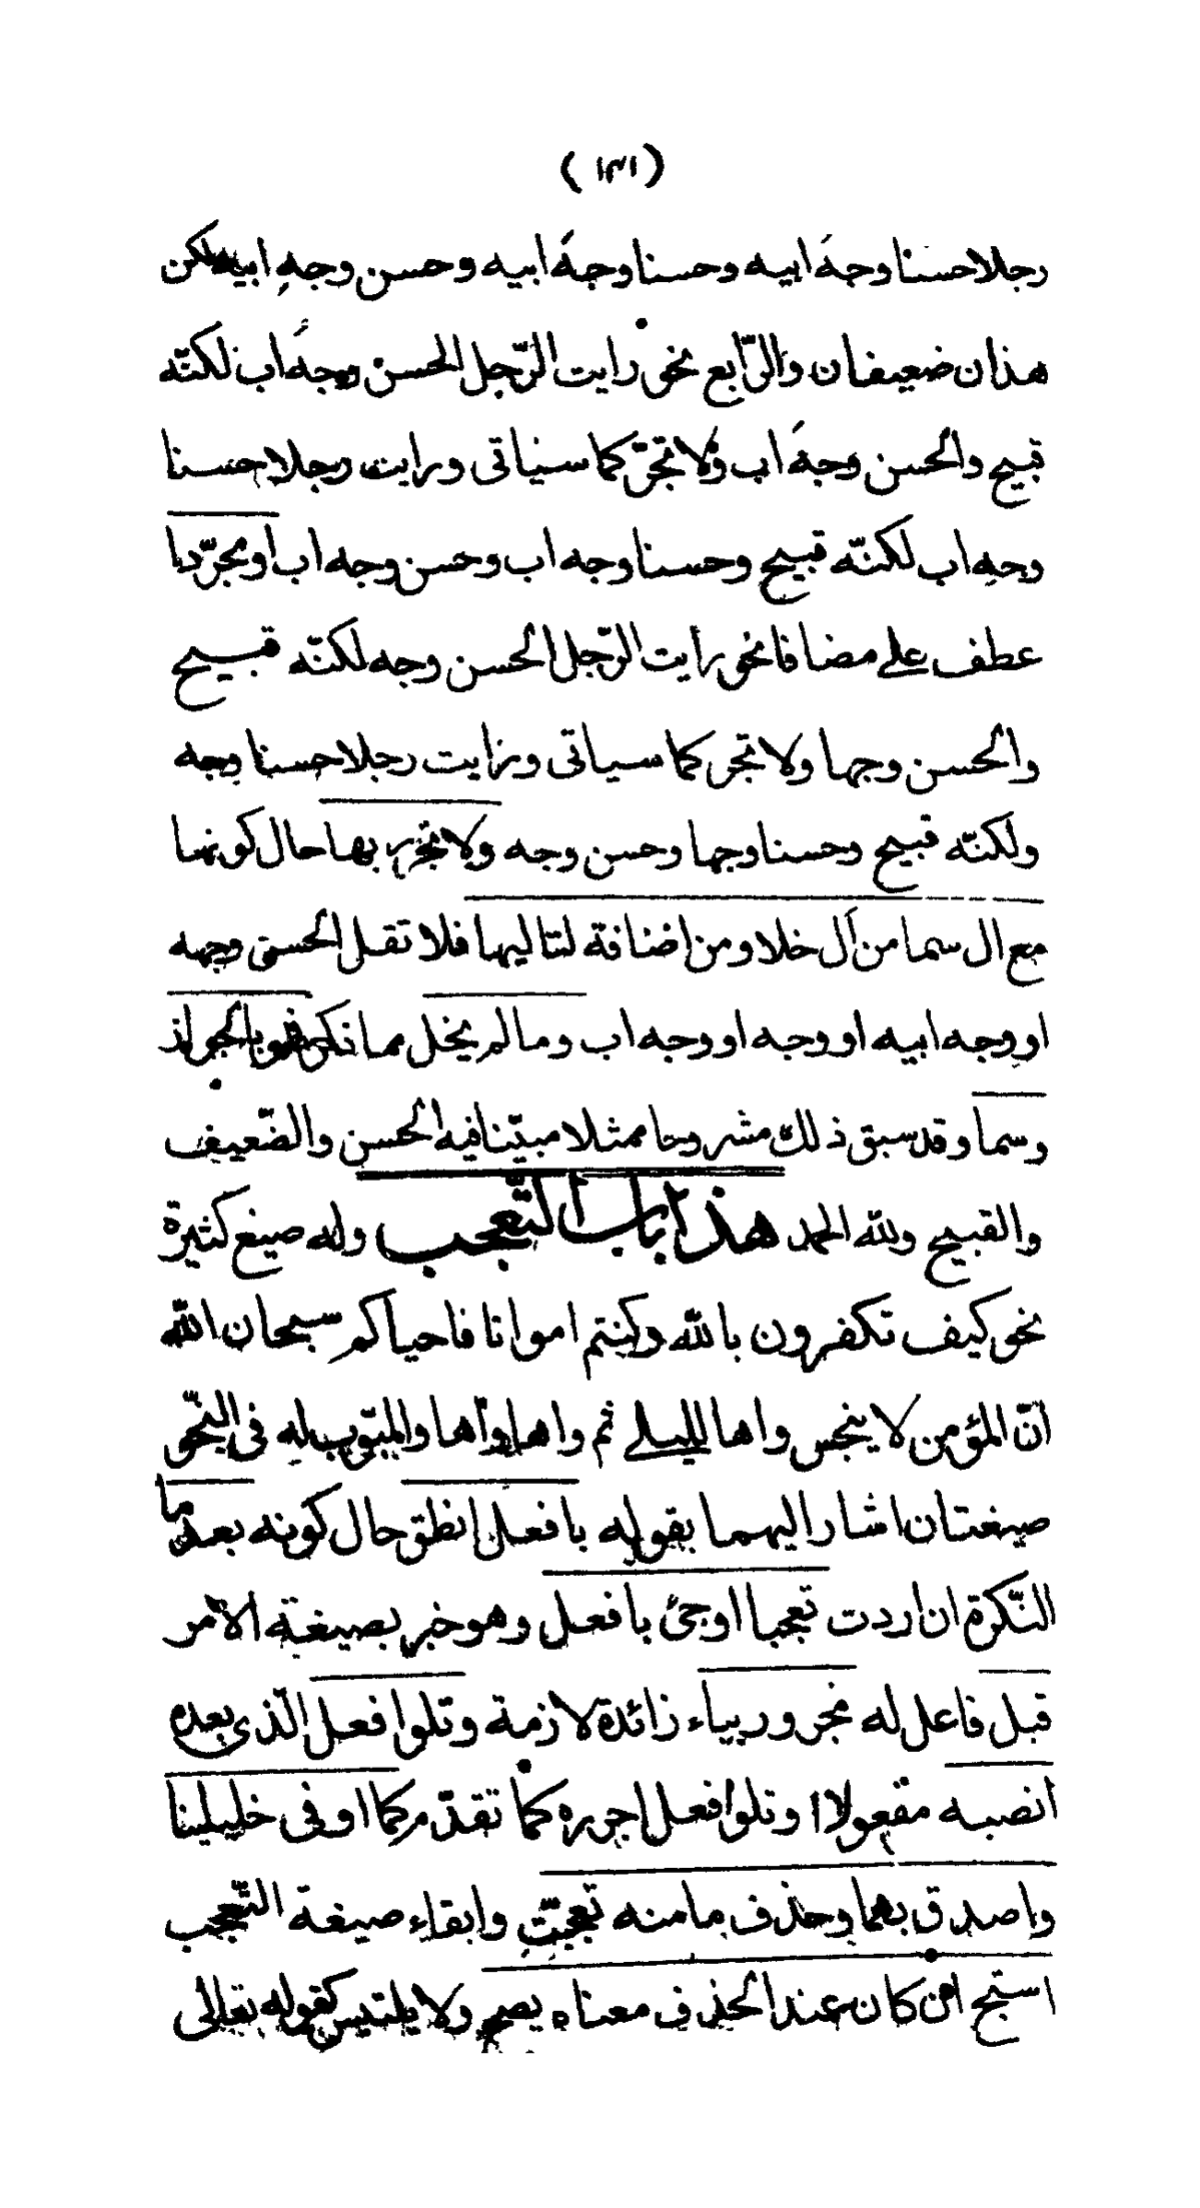 ( ١٣١ )
رجلا حسنا وجهَ ابيه وحسنا وجهَ ابيه وحسن وجهِ ابيه لكن
هذان ضعيفان والرّابع نحو رايت الرّجل الحسن وجهُ اب لكنّه
قبيح والحسن وجهَ اب ولا تجرّ كما سياتى ورايت رجلا حسنا
وجه اب لكنّه قبيح وحسنا وجه اب وحسن وجه اب او مجرّدا
عطف على مضافا نحو رايت الرّجل الحسن وجه لكنّه قبيح
والحسن وجها ولا تجر كما سياتى ورايت رجلا حسنا وجه
ولكنّه قبيح وحسنا وجها وحسن وجه ولا تجرر بها حال كونها
مع ال سما من أل خلا ومن اضافة لتاليها فلا تقل الحسن وجهه
او وجه ابيه او وجه او وجه اب وما لم يخل مما ذكر فهو بالجواز
وسما وقد سبق ذلك مشروحا ممثلا مبيّنا فيه الحسن والضّعيف
والقبيح ولله الحمد هذا باب التّعجب وله صيغ كثيرة
نحو كيف تكفرون بالله وكنتم امواتا فاحياكم سبحان الله
انّ المؤمن لا ينجس واها لليلى ثم واها واها والمبوّب له فى النّحو
صيغتان اشار اليهما بقوله بافعل انطق حال كونه بعد ما
النّكرة ان اردت تعجبا او جئ بافعل وهو خبر بصيغة الامر
قبل فاعل له مجرور بباء زائدة لازمة وتلو افعل الّذى بعده
انصبه مفعولا وتلو افعل اجرره كما تقدّم كما اوفى خليلينا
واصدق بهما وحذف ما منه تعجبّت وابقاء صيغة التّعجب
استبح ان كان عند الحذف معناه يصح ولا يلتبس كقوله تعالى